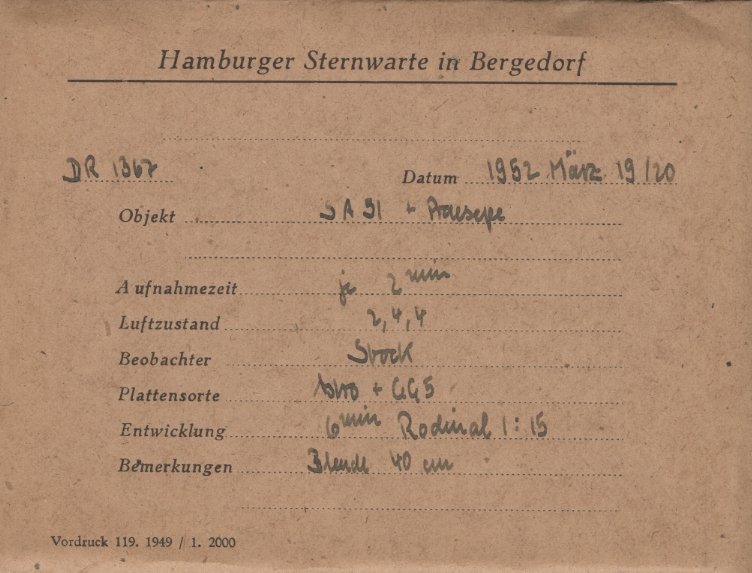 Hamburger Sternwarte in Bergedorf
DR 1367 Datum 1952 März 19/20
Objekt SA 51 + Praesepe
Aufnahmezeit je 2 min
Luftzustand 2,4,4
Beobachter Stock
Plattensorte + GG5
Entwicklung 6 min Rodinal 1:15
Bemerkungen Blende 40 cm
Vordruck 119. 1949 / 1. 2000